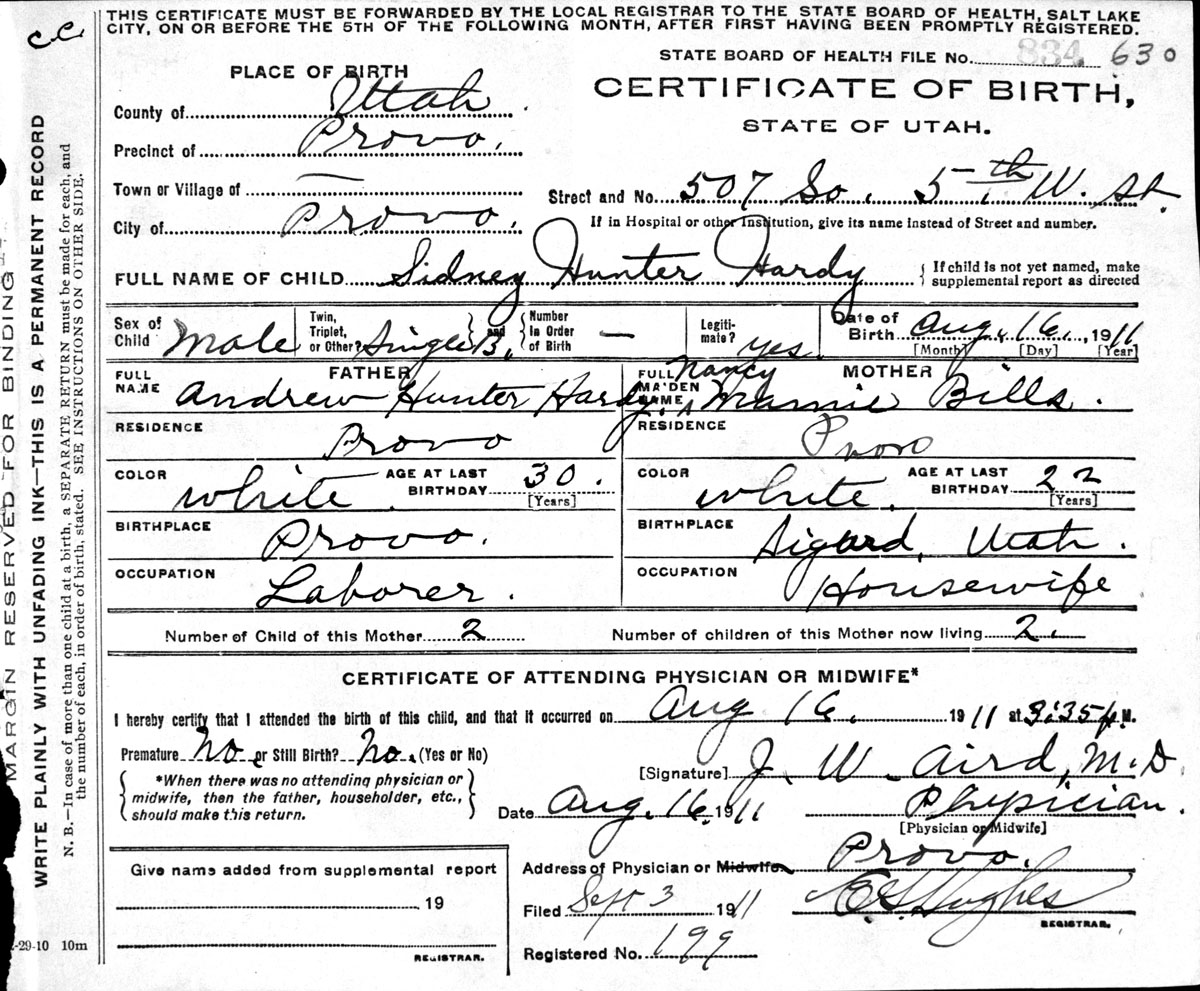 c.c.
THIS CERTIFICATE MUST BE FORWARDED BY THE LOCAL REGISTRAR TO THE STATE BOARD OF HEALTH, SALT LAKE
CITY, ON OR BEFORE THE 5TH OF THE FOLLOWING MONTH, AFTER FIRST HAVING BEEN PROMPTLY REGISTERED.
STATE BOARD OF HEALTH FILE NO. 834 630
PLACE OF BIRTH
CERTIFICATE OF BIRTH,
STATE OF UTAH.
County of Uttah.
Precinct of Provo.
Town or Village of —
Street and No. 507 So. 5th W. St.
City of Provo.
If in Hospital or other Institution, give its name instead of Street and number.
FULL NAME OF CHILD Sidney Hunter Hardy { If child is not yet named, make
supplemental report as directed
Sex of Child Male Twin, Triplet, or Other? Single B. } and { Number In Order of Birth — Legiti- mate? yes. Date of Birth Aug. 16., 1911
[Month] [Day] [Year]
FATHER MOTHER
FULL NAME Andrew Hunter Hardy. FULL MAIDEN NAME Nancy Mamie Bills.
RESIDENCE Provo RESIDENCE Provo
COLOR white. AGE AT LAST BIRTHDAY 30. [Years] COLOR white. AGE AT LAST BIRTHDAY 22 [Years]
BIRTHPLACE Provo. BIRTHPLACE Sigurd, Utah.
OCCUPATION Laborer. OCCUPATION Housewife
Number of Child of this Mother 2 Number of children of this Mother now living 2.
CERTIFICATE OF ATTENDING PHYSICIAN OR MIDWIFE*
I hereby certify that I attended the birth of this child, and that it occurred on Aug 16. 1911 at 3:35 p.M.
Premature No. or Still Birth? No. (Yes or No)
[Signature] J. W. Aird, M.D.
{ *When there was no attending physician or
midwife, then the father, householder, etc.,
should make this return. }
Date Aug. 16. 1911 Physician.
[Physician or Midwife]
Address of Physician or Midwife Provo.
Give name added from supplemental report
19
REGISTRAR.
Filed Sept 3 1911 Hughes
REGISTRAR.
Registered No. 199
MARGIN RESERVED FOR BINDING
WRITE PLAINLY WITH UNFADING INK—THIS IS A PERMANENT RECORD
N. B.—In case of more than one child at a birth, a SEPARATE RETURN must be made for each, and
the number of each, in order of birth, stated. SEE INSTRUCTIONS ON OTHER SIDE.
-29-10 10m